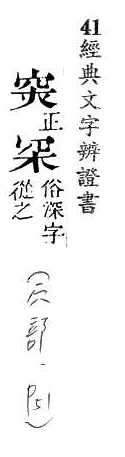 41經典文字辨證書
正罙俗深字
從之
(穴部.P51)